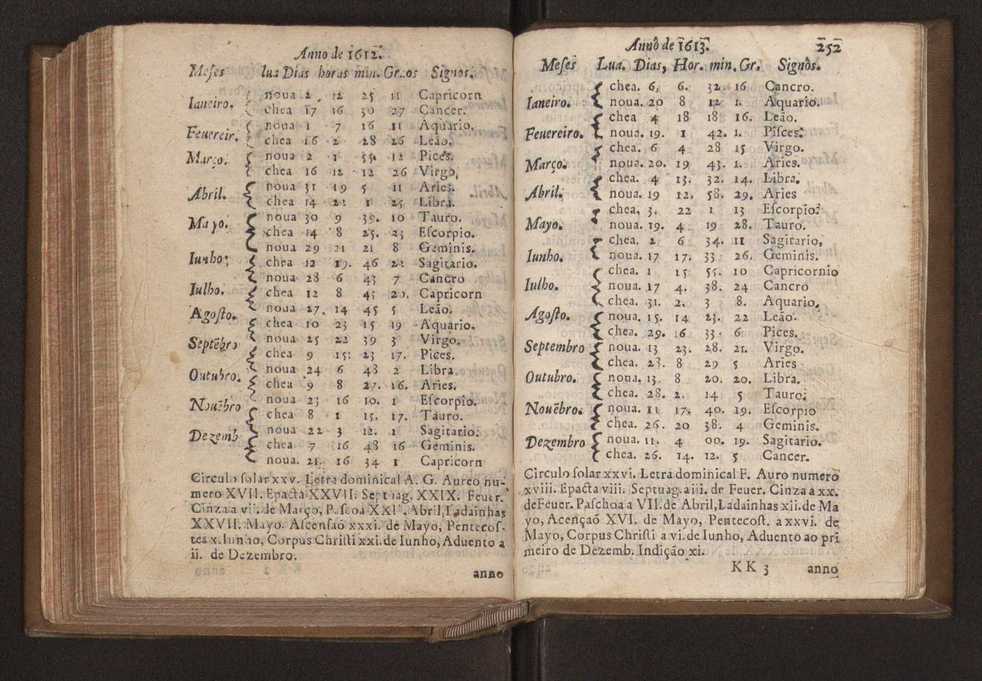 Anno de 1612.
Meses lua Dias horas min. Gr..os Signos.
Ianeiro. noua 2 12 25 11 Capricorn
chea 17 16 30 27 Cancer.
Feuereir. noua 1 7 16 11 Aquario.
chea 16 2 28 26 Leão.
Março. noua 2 1 12 Pices.
chea 16 12 12 26 Virgo,
Abril. noua 31 19 5 11 Aries.
chea 14 22 1 25 Libra.
Mayo. noua 30 9 39. 10 Tauro.
chea 14 8 25. 25 Escorpio.
noua 29 21 21 8 Geminis.
Iunho: chea 12 19. 46 22 Sagitario.
noua 28 6 43 7 Cancro
Iulho. chea 12 8 45 20. Capricorn
noua 27. 14 45 5 Leão.
Agosto. chea 10 23 15 19 Aquario.
noua 25 22 39 3 Virgo.
Septẽbro chea 9 15: 23 17. Pices.
noua 24 6 48 2 Libra.
Outubro. chea 9 8 27. 16. Aries.
noua 23 16 10. 1 Escorpio.
Nouẽbro chea 8 1 15. 17. Tauro.
noua 22 3 12. 1 Sagitario.
Dezemb chea 7 16 48 16 Geminis.
noua. 21. 16 34 1 Capricorn
Circulo solar xxv. Letra dominical A. G. Aureo nu-
mero XVII. Epacta XXVII. Septuag. XXIX. Feuer.
Cinza a vii. de Março, Pascoa XXII. Abril, Ladainhas
XXVII. Mayo. Ascensaõ xxxi. de Mayo, Pentecos-
tes x. Iunho, Corpus Christi xxi. de Iunho, Aduento a
ii. de Dezembro.
anno
Anno de 1613. 252
Meses Lua. Dias, Hor. min. Gr. Signos.
chea. 6. 6. 32. 16 Cancro.
Ianeiro. noua. 20 8 12 1. Aquario.
chea 4 18 18 16. Leão.
Feuereiro. noua. 19. 1 42. 1. Pisces.
chea. 6 4 28 15 Virgo.
Março. noua. 20. 19 43. 1. Aries.
chea. 4 13. 32. 14. Libra.
Abril. noua. 19 12. 58. 29. Aries
chea. 3. 22 1 13 Escorpio.
Mayo. noua. 19. 4 19 28. Tauro.
chea. 2 6 34. 11 Sagitario,
Iunho. noua. 17 17. 33 26. Geminis.
chea. 1 15 55. 10 Capricornio
Iulho. noua. 17 4. 38. 24 Cancro
chea. 31. 2. 3 8. Aquario.
Agosto. noua. 15. 14 23. 22 Leão.
chea. 29. 16 33. 6 Pices.
Septembro noua. 13 23. 28. 21. Virgo.
chea. 28. 8 29 5 Aries
Outubro. noua. 13. 8 20. 20. Libra.
chea. 28. 2. 14 5 Tauro.
Nouẽbro. noua. 11 17. 40. 19. Escorpio
chea. 26. 20 38. 4 Geminis.
Dezembro noua. 11. 4 00. 19. Sagitario.
chea. 26. 14. 12. 5 Cancer.
Circulo solar xxvi. Letra dominical F. Auro numero
xviii. Epacta viii. Septuag. a iii. de Feuer. Cinza a xx.
de Feuer. Paschoa a VII. de Abril, Ladainhas xii. de Ma
yo, Acençaõ XVI. de Mayo, Pentecost. a xxvi. de
Mayo, Corpus Christi a vi. de Iunho, Aduento ao pri
meiro de Dezemb. Indição xi.
KK 3 anno